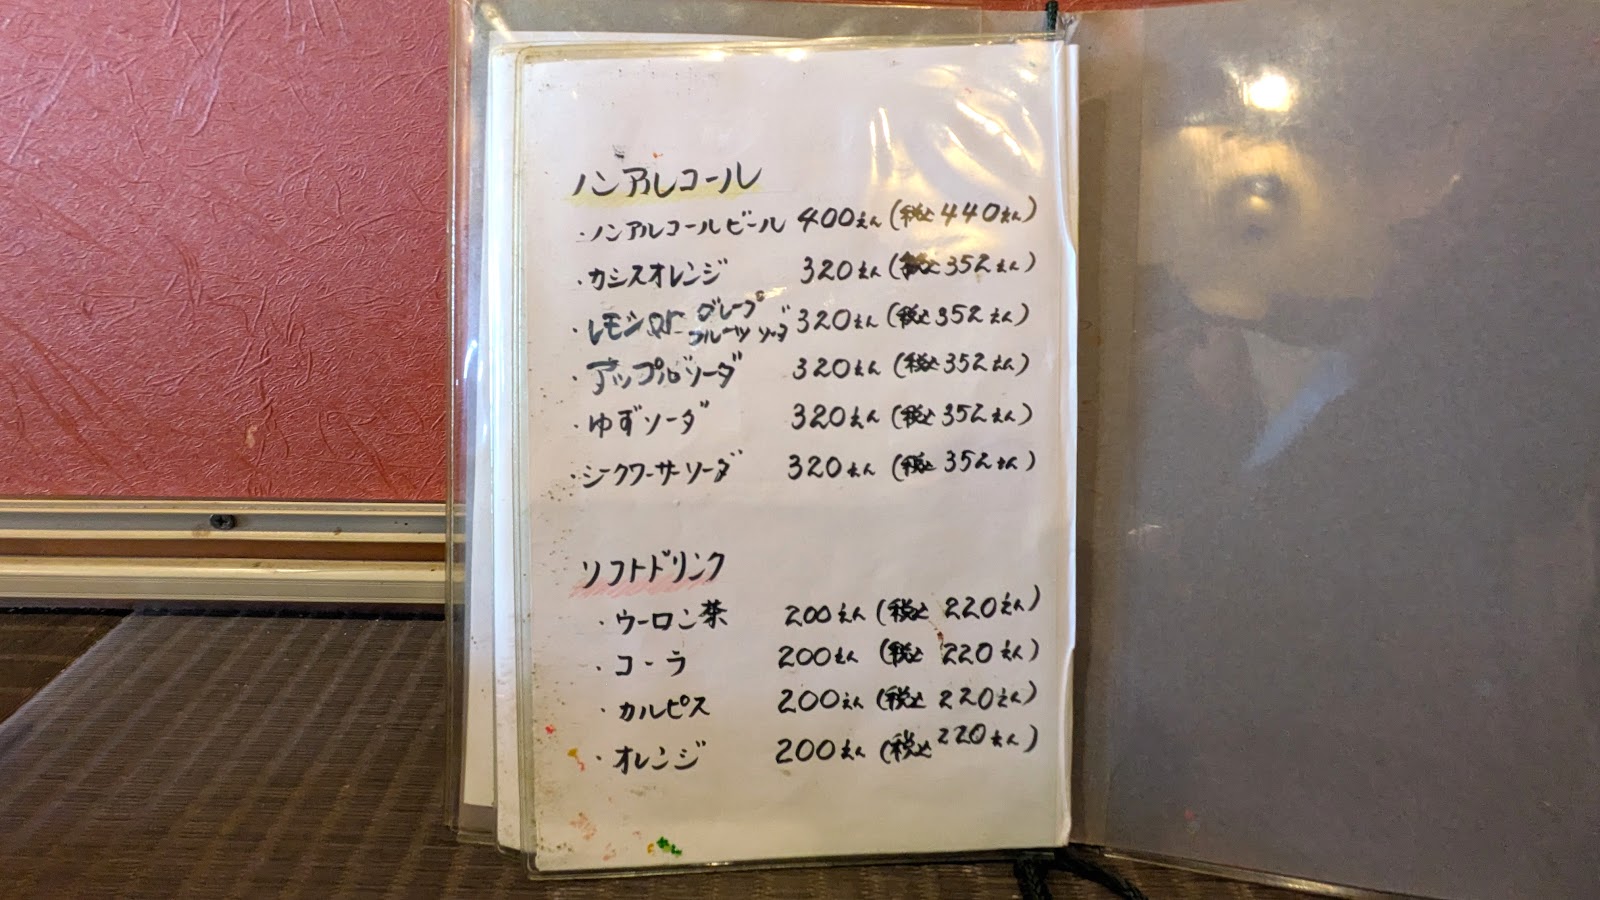 ノンアルコール
・ノンアルコールビール 400えん(税込440えん)
・カシスオレンジ 320えん(税込352えん)
・レモンorグレープフルーツソーダ 320えん(税込352えん)
・アップルソーダ 320えん(税込352えん)
・ゆずソーダ 320えん(税込352えん)
・シークワーサーソーダ 320えん(税込352えん)
ソフトドリンク
・ウーロン茶 200えん(税込220えん)
・コーラ 200えん(税込220えん)
・カルピス 200えん(税込220えん)
・オレンジ 200えん(税込220えん)